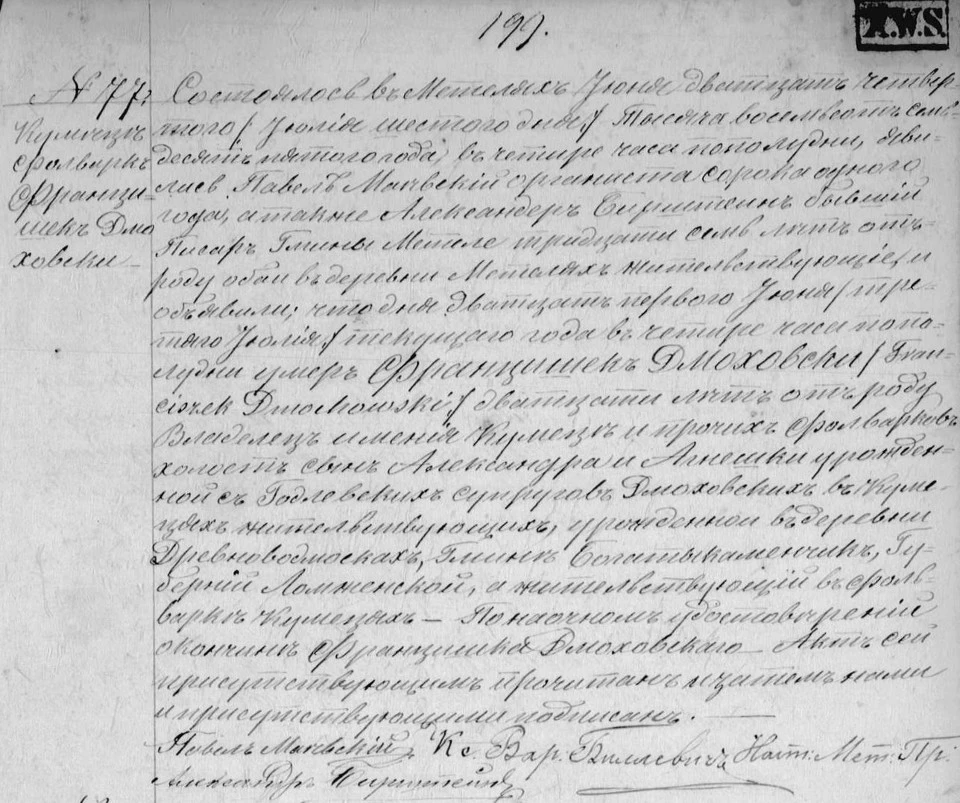 199.
A.W.S.
№ 77.
Кумецкъ
Фолваркъ
Францы-
шекъ Дмо
ховски
Состоялосъ въ Метеляхъ Юня дватцатъ четвер-
таго / Юлія шестого дня / Тысяча восемъсотъ семъ-
десятъ пятого года, въ четире часа пополудни, яви-
лисъ Павелъ Мачвскій органиста сорока одного
года, а также Александеръ бывшій
Писаръ Гмины Метеле тридцати семъ летъ отъ
роду оба въ деревни Метеляхъ жительствующіе, и
объявили; что дня дватцатъ первого Юня / тре-
тяго Юлія / текущаго года въ четире часа попо-
лудни умеръ Францишекъ Дмоховски / Fran-
ciszek Dmochowski / дватцати летъ отъ роду
Владелецъ именія Кумецкъ и прочихъ фолварковъ
холостъ сынъ Александра и Агнешки урожден-
ной съ Годлевскихъ супруговъ Дмоховскихъ въ Куме-
цяхъ жительствующихъ, урожденной въ деревни
Древноводмоскахъ, Гминъ Богатыкаменчикъ, Гу-
берній Ломженской, а жительствующій въ фоль-
варкъ Кумецяхъ — По наочномъ удостоверений
окончинъ Францишка Дмоховскаго — Актъ сей
присутствующимъ прочитанъ и затемъ нами
и присутствующими подписанъ. —
Павелъ Мачвскій Кс. Вар. Билевичъ Наст: Мет: Пр.
Александръ